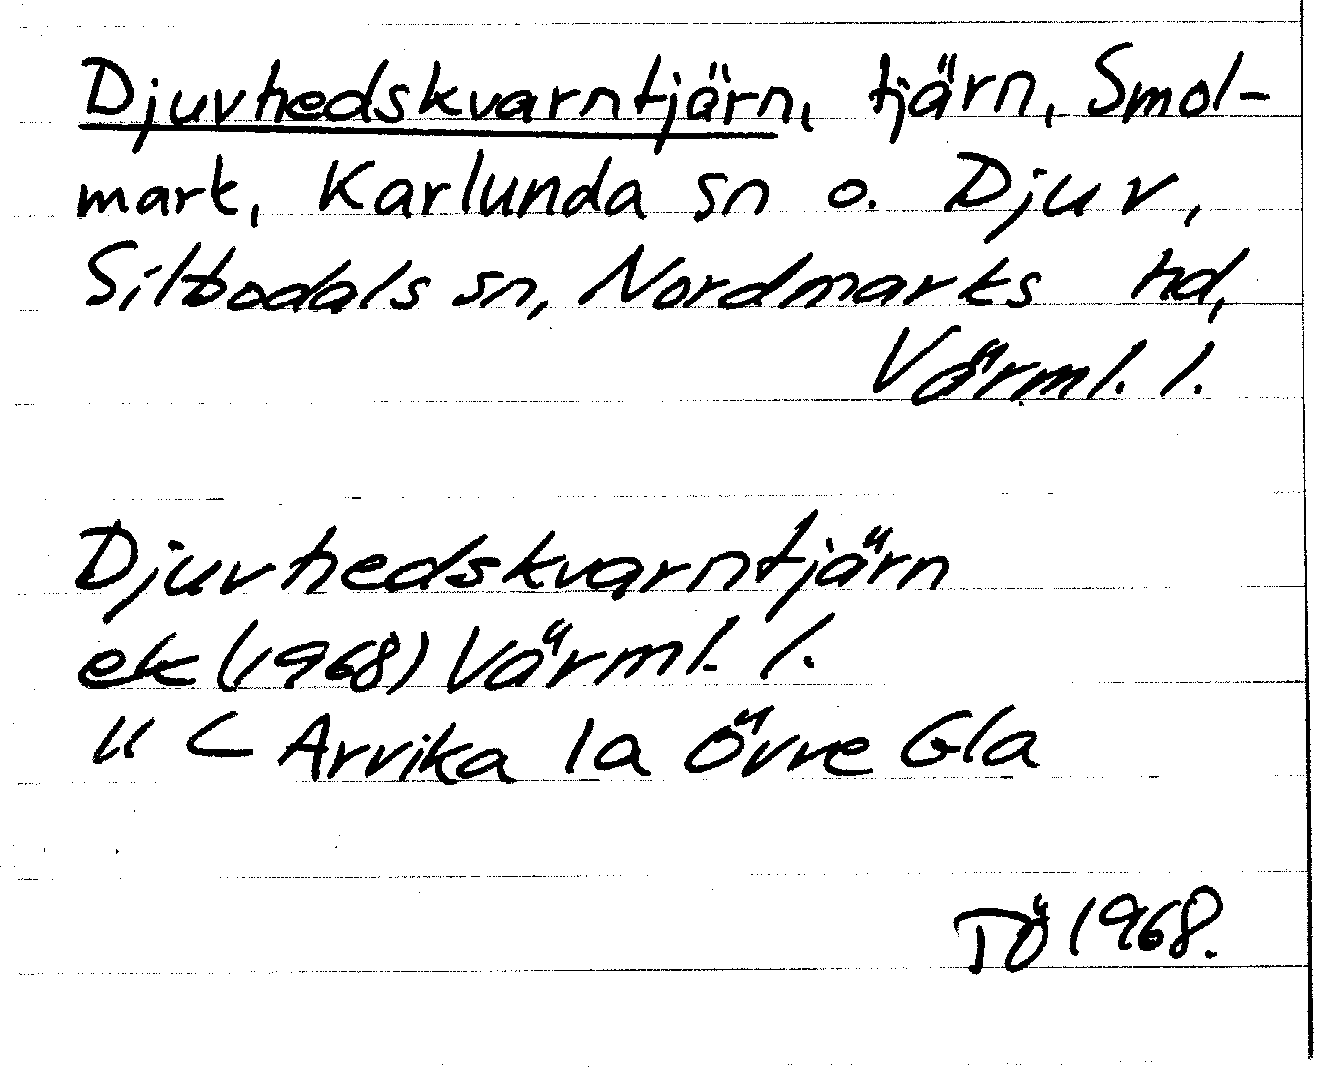 Djuvhedskvarntjärn, tjärn, Smol-
mark, Karlunda sn o. Djuv,
Silbodals sn, Nordmarks hd,
Värml. l.
Djuvhedskvarntjärn
ek (1968) Värml. l.
" C Arvika 1a Övre Gla
TÖ 1968.